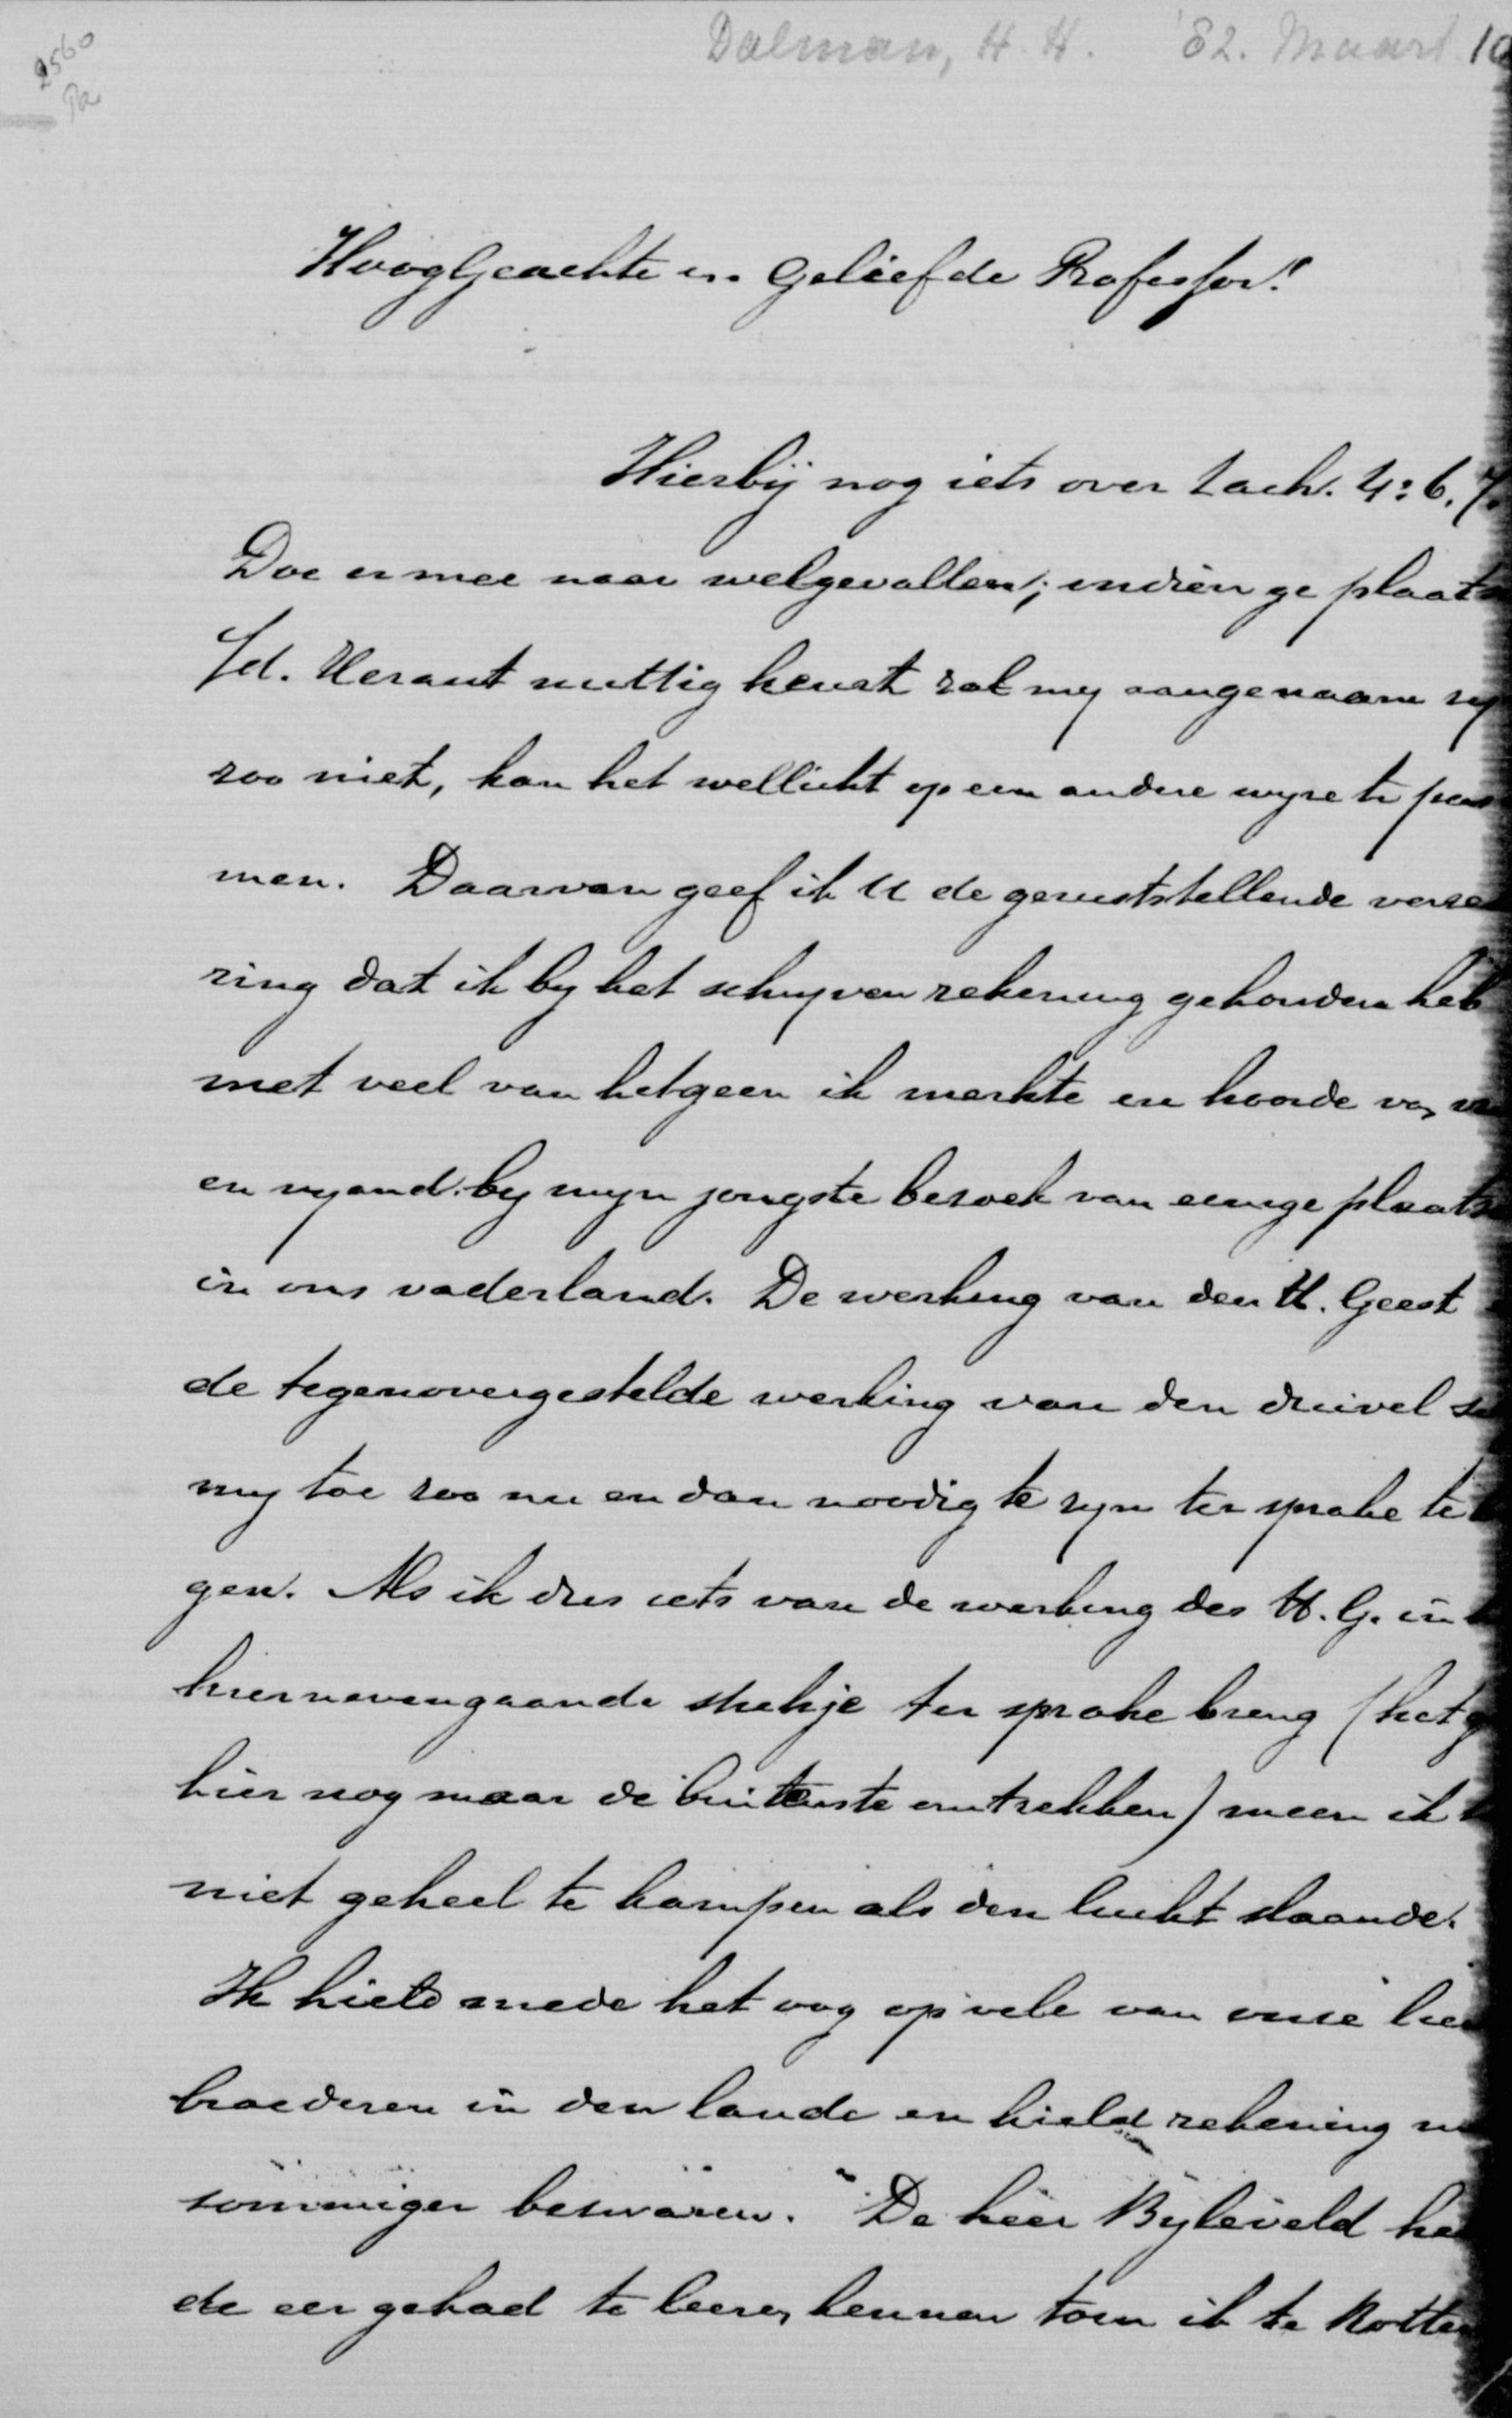 Dalman, H. H. '82. Maart 10
2560
Pa
HoogGeachte en Geliefde Professor!
Hierbij nog iets over Zach. 4:6.7.
Doe er mee naar welgevallen; indien ge plaats
/d. Heraut nuttig keurt zal my aangenaam zy
zoo niet, kan het wellicht op een andere wyze te pas
men. Daarvan geef ik U de geruststellende verze
ring dat ik by het schryven rekening gehouden heb
met veel van hetgeen ik merkte en hoorde van
en vyand by myn jongste bezoek van eenige plaats
in ons vaderland. De werking van den H. Geest
de tegenovergestelde werking van den duivel
my toe zoo nu en dan noodig te zyn ter sprake te
gen. Als ik dus iets van de werking des H. G. in
hiernevengaande stukje ter sprake breng (het
hier nog maar de buitenste omtrekken) meen ik
niet geheel te kampen als den lucht slaande.
Ik hield mede het oog op vele van onze
broederen in den lande en hield rekening
sommiger bezwaren. De heer Byleveld
de eer gehad te leeren kennen toen ik te Rotte